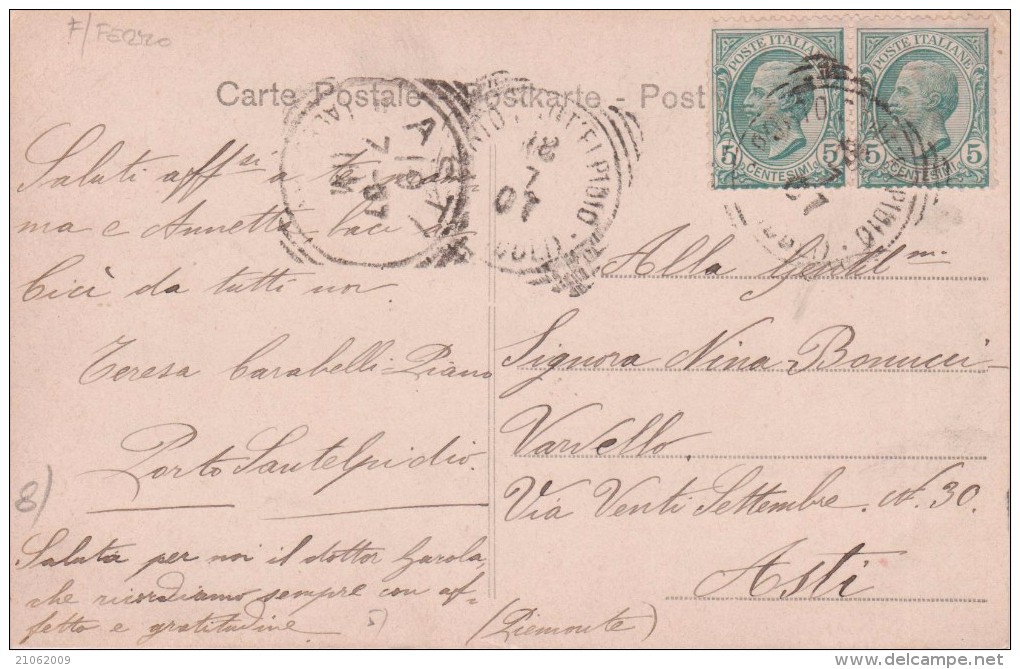 F/FERMO
Carte Postale - Postkarte - Post
POSTE ITALIANE
5 CENTESIMI 5
POSTE ITALIANE
5 CENTESIMI 5
18
7
07
Saluti aff.si a te, mam=
ma e Annetta, baci a
Cicì da tutti noi
Teresa Carabelli=Piano
Porto Santelpidio.
Saluta per noi il dottor Garola,
che ricordiamo sempre con af=
fetto e gratitudine
8)
5)
Alla Gentil.ma
Signora Nina Bonucci-
Varvello.
Via Venti Settembre. N. 30.
Asti
(Piemonte)
21062009
www.delcampe.net